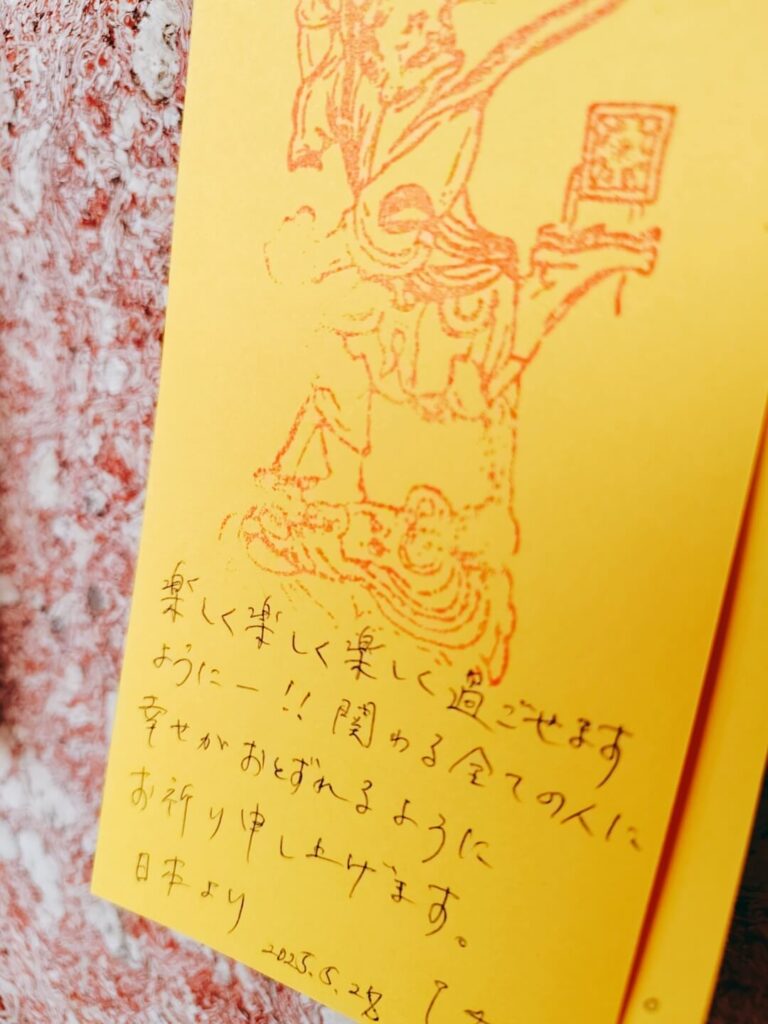 楽しく楽しく楽しく過ごせます
ように一!! 関わる全ての人に
幸せがおとずれるように
お祈り申し上げます。
日本より
2025.5.28